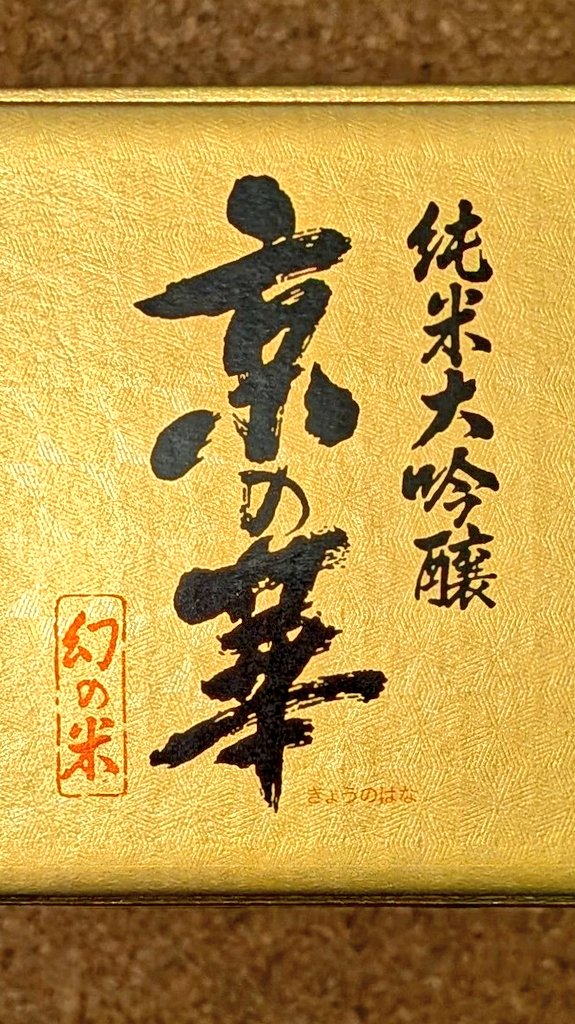 純米大吟醸
京の華
きょうのはな
幻の米